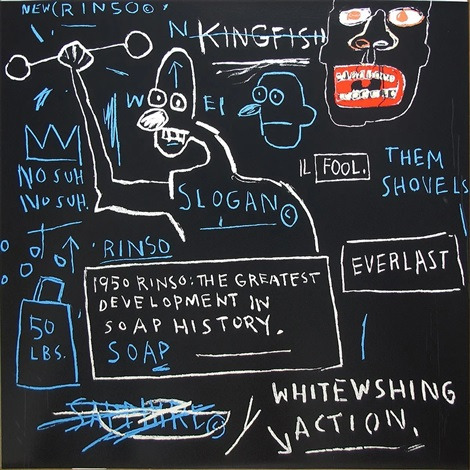 NEW(RINSO©
N KINGFISH
W EI
NO SUH
NO SUH.
SLOGAN©
IL FOOL.
THEM
SHOVELS
RINSO
EVERLAST
1950 RINSO: THE GREATEST
DEVELOPMENT IN
SOAP HISTORY.
SOAP
50
LBS.
SAPPHIRE©
WHITEWSHING
ACTION.